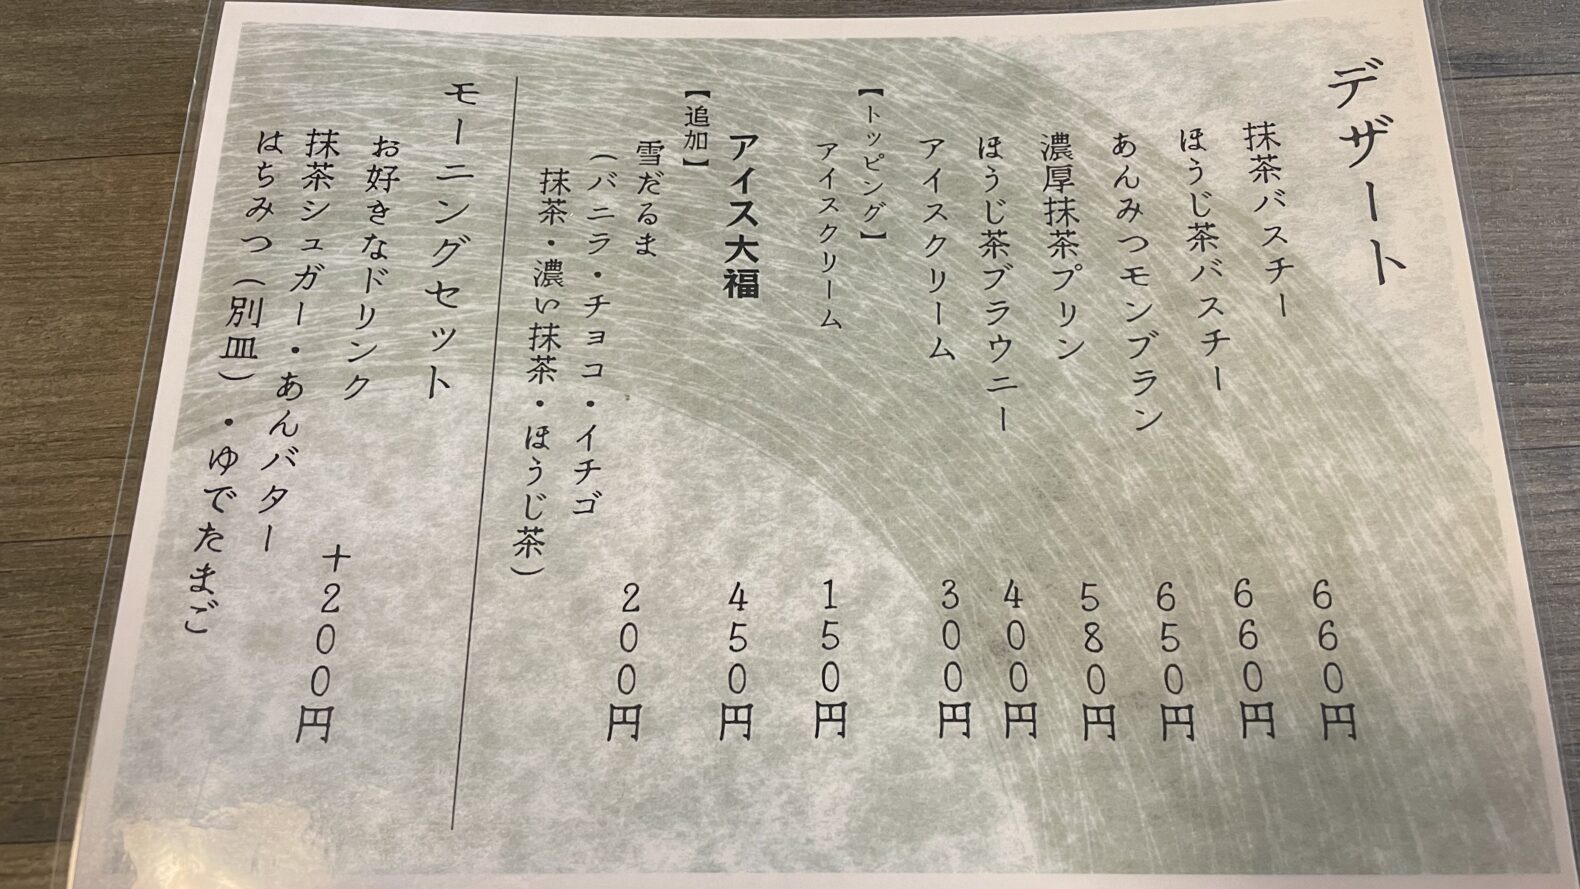 デザート
抹茶バスチー 660円
ほうじ茶バスチー 660円
あんみつモンブラン 650円
濃厚抹茶プリン 580円
ほうじ茶ブラウニー 400円
アイスクリーム 300円
【トッピング】
アイスクリーム 150円
アイス大福 450円
【追加】
雪だるま 200円
（バニラ・チョコ・イチゴ
抹茶・濃い抹茶・ほうじ茶）
モーニングセット
お好きなドリンク +200円
抹茶シュガー・あんバター
はちみつ（別皿）・ゆでたまご